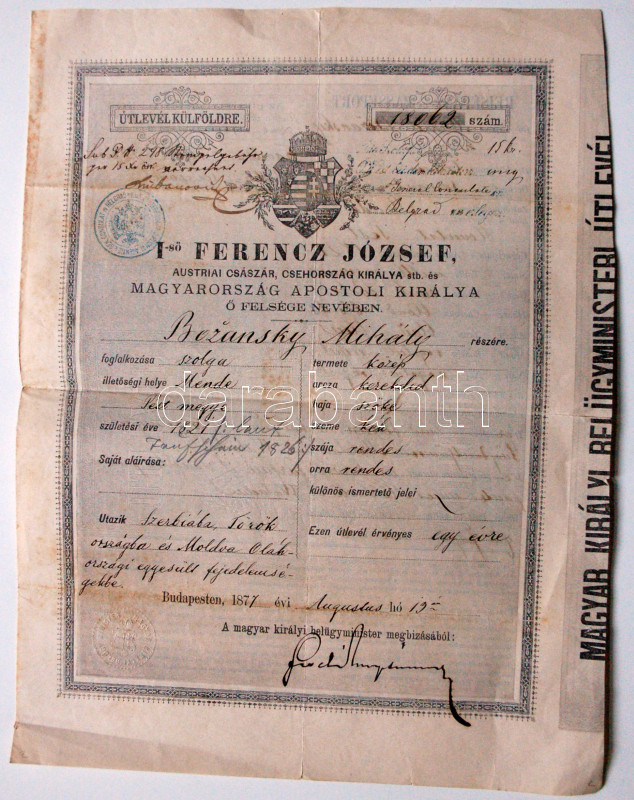 ÚTLEVÉL KÜLFÖLDRE.
18062 szám.
15 kr.
General Consulates
Belgrad
I-ső FERENCZ JÓZSEF,
AUSTRIAI CSÁSZÁR, CSEHORSZÁG KIRÁLYA stb. és
MAGYARORSZÁG APOSTOLI KIRÁLYA
Ő FELSÉGE NEVÉBEN.
Božansky Mihály részére.
foglalkozása szolga
illetőségi helye Mende
Pest megye
születési éve 1827
Taufschein 1826
Saját aláirása:
termete közép
arcza kerekded
haja szőke
szeme kék
szája rendes
orra rendes
különös ismertető jelei
Utazik Szerbiába, Török-
országba és Moldva Oláh-
országi egyesült fejedelemsé-
gekbe.
Ezen útlevél érvényes egy évre
Budapesten, 1877 évi Augustus hó 13
A magyar királyi belügyminister megbizásából:
MAGYAR KIRÁLYI BELÜGYMINISTERI ÚTLEVÉL
darabanth